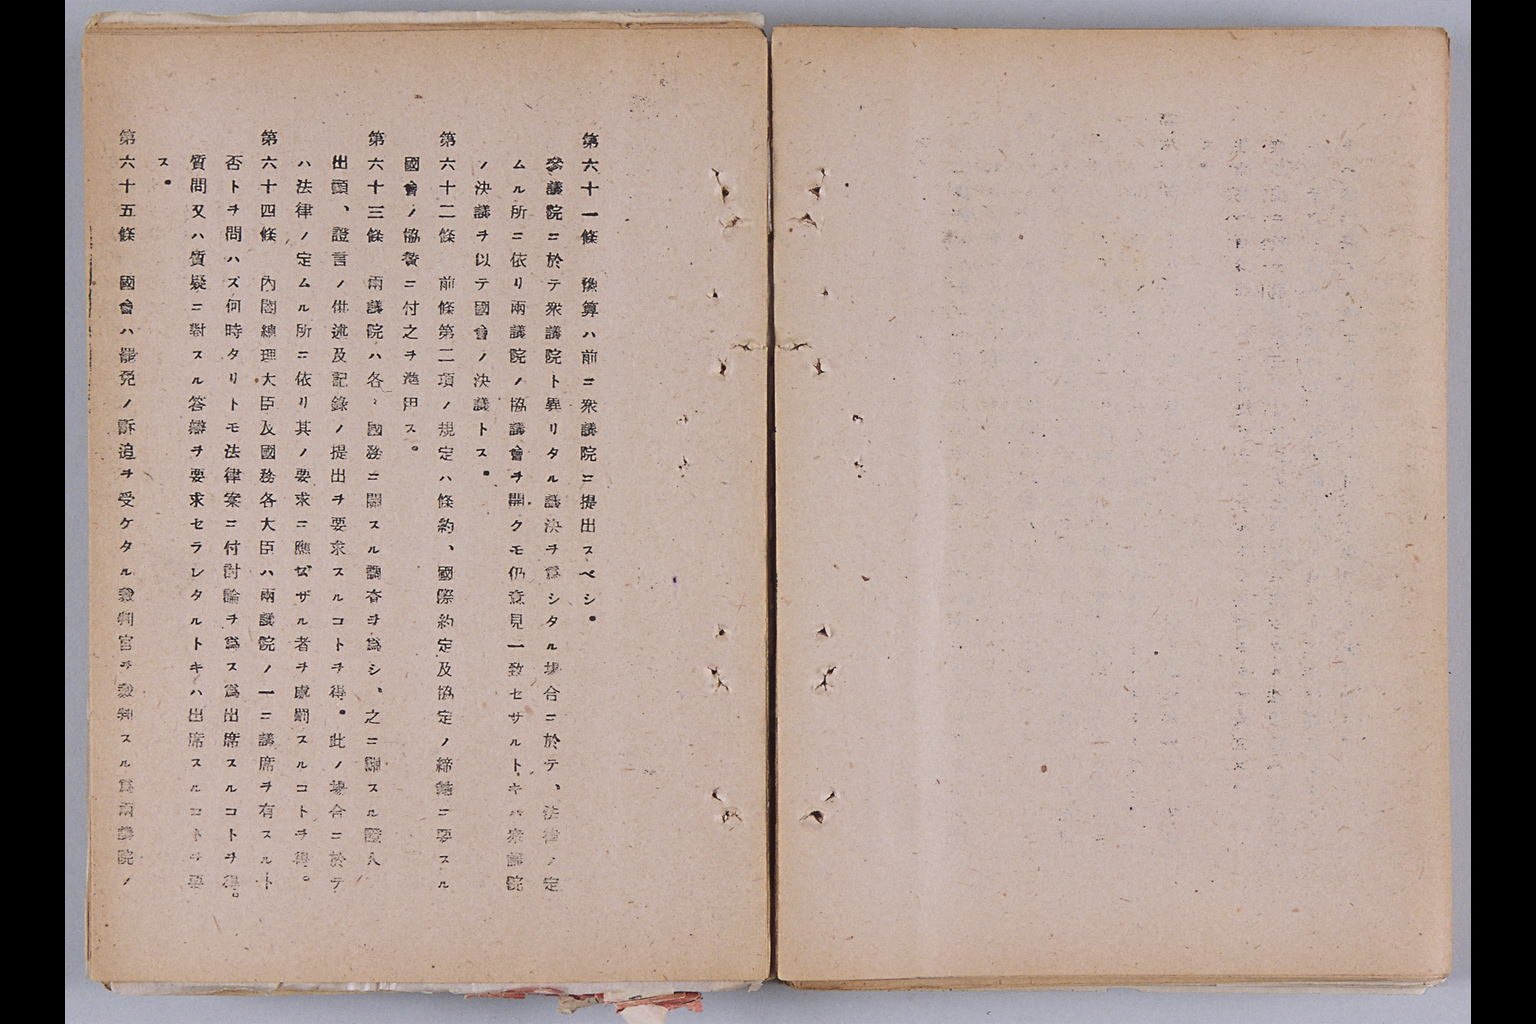 第六十一條　豫算ハ前ニ衆議院ニ提出スベシ。
參議院ニ於テ衆議院ト異リタル議決ヲ爲シタル場合ニ於テ、法律ノ定
ムル所ニ依リ兩議院ノ協議會ヲ開クモ仍意見一致セサルトキハ衆議院
ノ決議ヲ以テ國會ノ決議トス。
第六十二條　前條第二項ノ規定ハ條約、國際約定及協定ノ締結ニ要スル
國會ノ協贊ニ付之ヲ準用ス。
第六十三條　兩議院ハ各〻國務ニ關スル調査ヲ爲シ、之ニ關スル證人
出頭、證言ノ供述及記錄ノ提出ヲ要求スルコトヲ得。此ノ場合ニ於テ
ハ法律ノ定ムル所ニ依リ其ノ要求ニ應ゼザル者ヲ處罰スルコトヲ得。
第六十四條　內閣總理大臣及國務各大臣ハ兩議院ノ一ニ議席ヲ有スルト
否トヲ問ハズ何時タリトモ法律案ニ付討論ヲ爲ス爲出席スルコトヲ得。
質問又ハ質疑ニ對スル答辯ヲ要求セラレタルトキハ出席スルコトヲ要
ス。
第六十五條　國會ハ罷免ノ訴追ヲ受ケタル裁判官ヲ裁判スル爲兩議院ノ